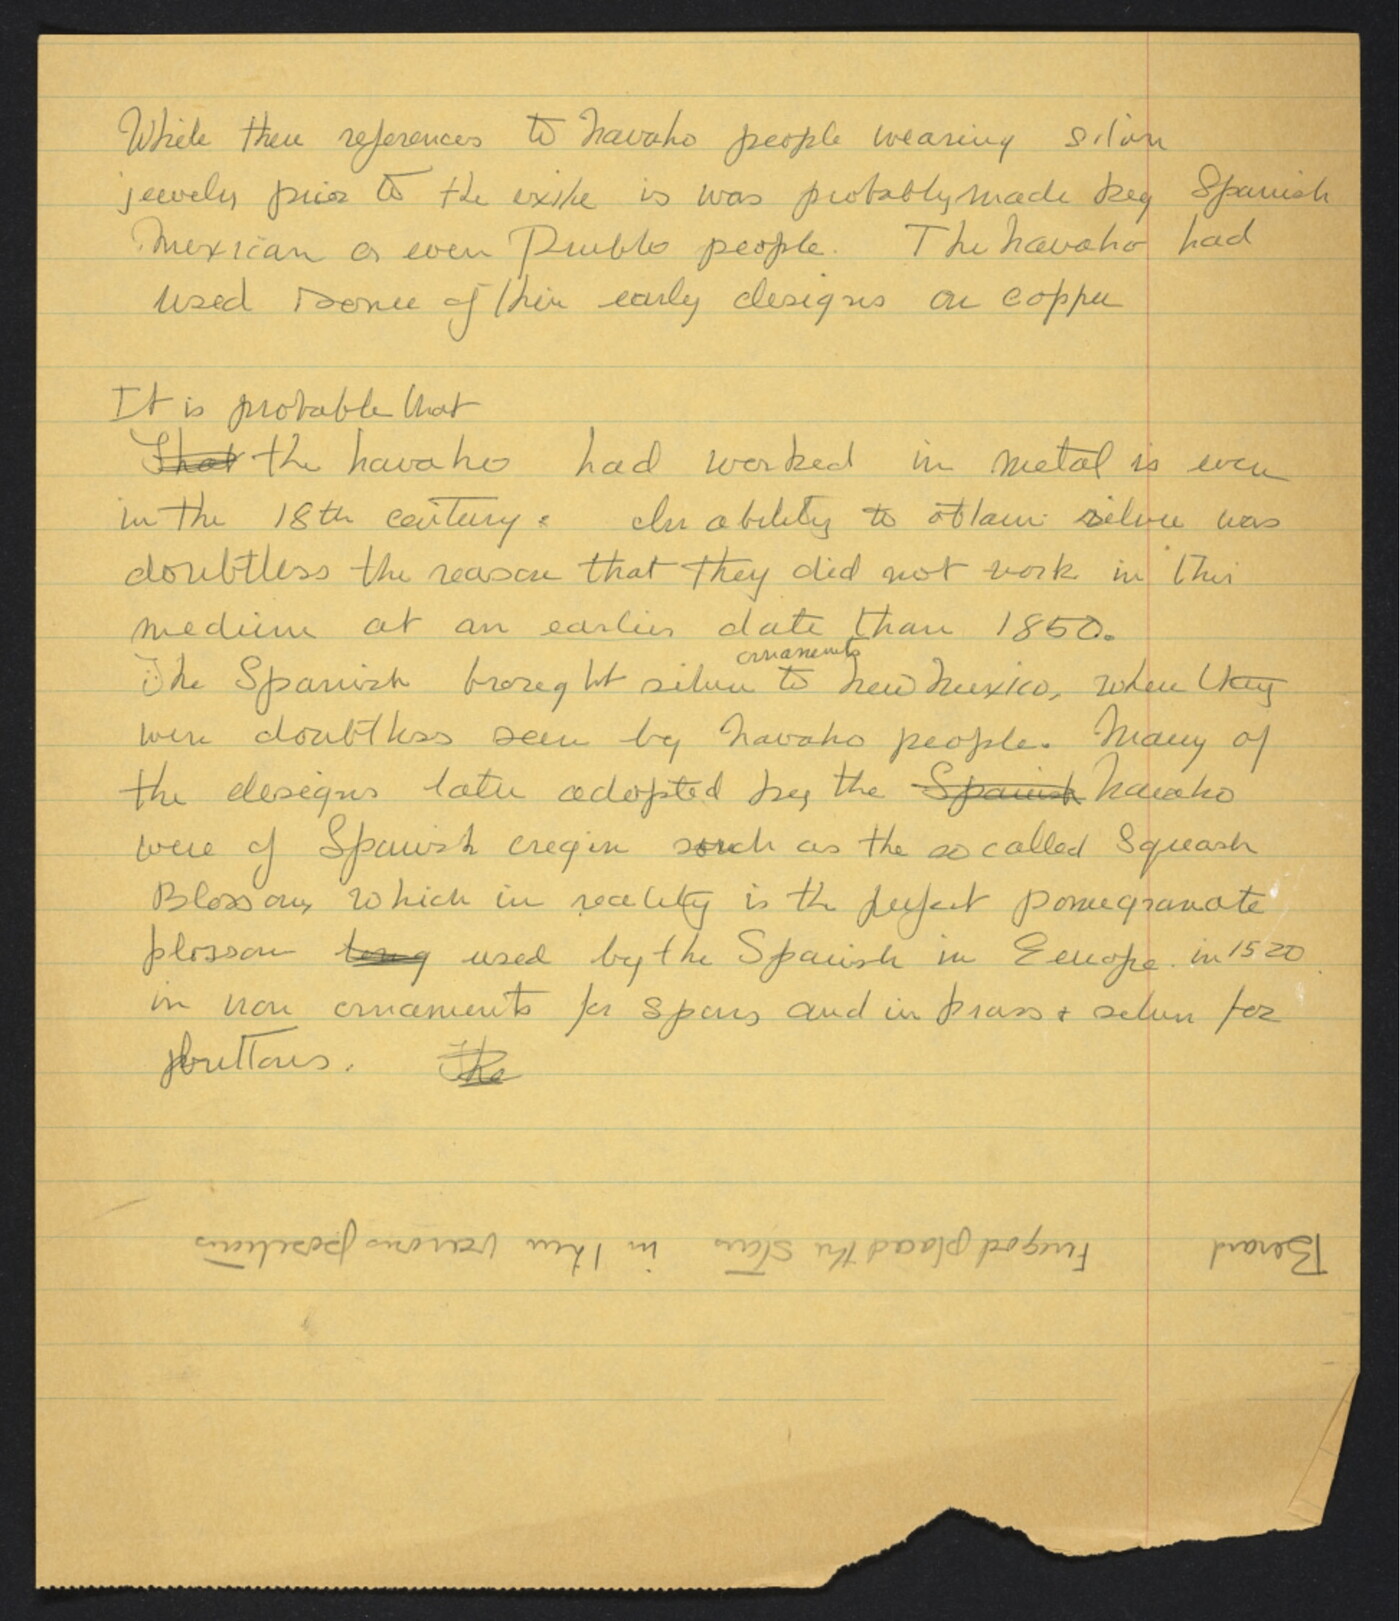 While then references to Navaho people wearing silver
jewelry prior to the exile is was probably made by Spanish
Mexican or even Pueblo people. The Navaho had
used some of their early designs on copper
It is probable that
That the Navaho had worked in metal is even
in the 18th century. In ability to obtain silver was
doubtless the reason that they did not work in this
medium at an earlier date than 1850.
ornaments
The Spanish brought silver to New Mexico, when they
were doubtless seen by Navaho people. Many of
the designs later adopted by the Spanish Navaho
were of Spanish origin such as the so called Squash
Blossom, which in reality is the perfect pomegranate
blossom long used by the Spanish in Europe in 1520
in iron ornaments for spurs and in brass + silver for
buttons. The
Berard Firegod placed the stars in their various positions